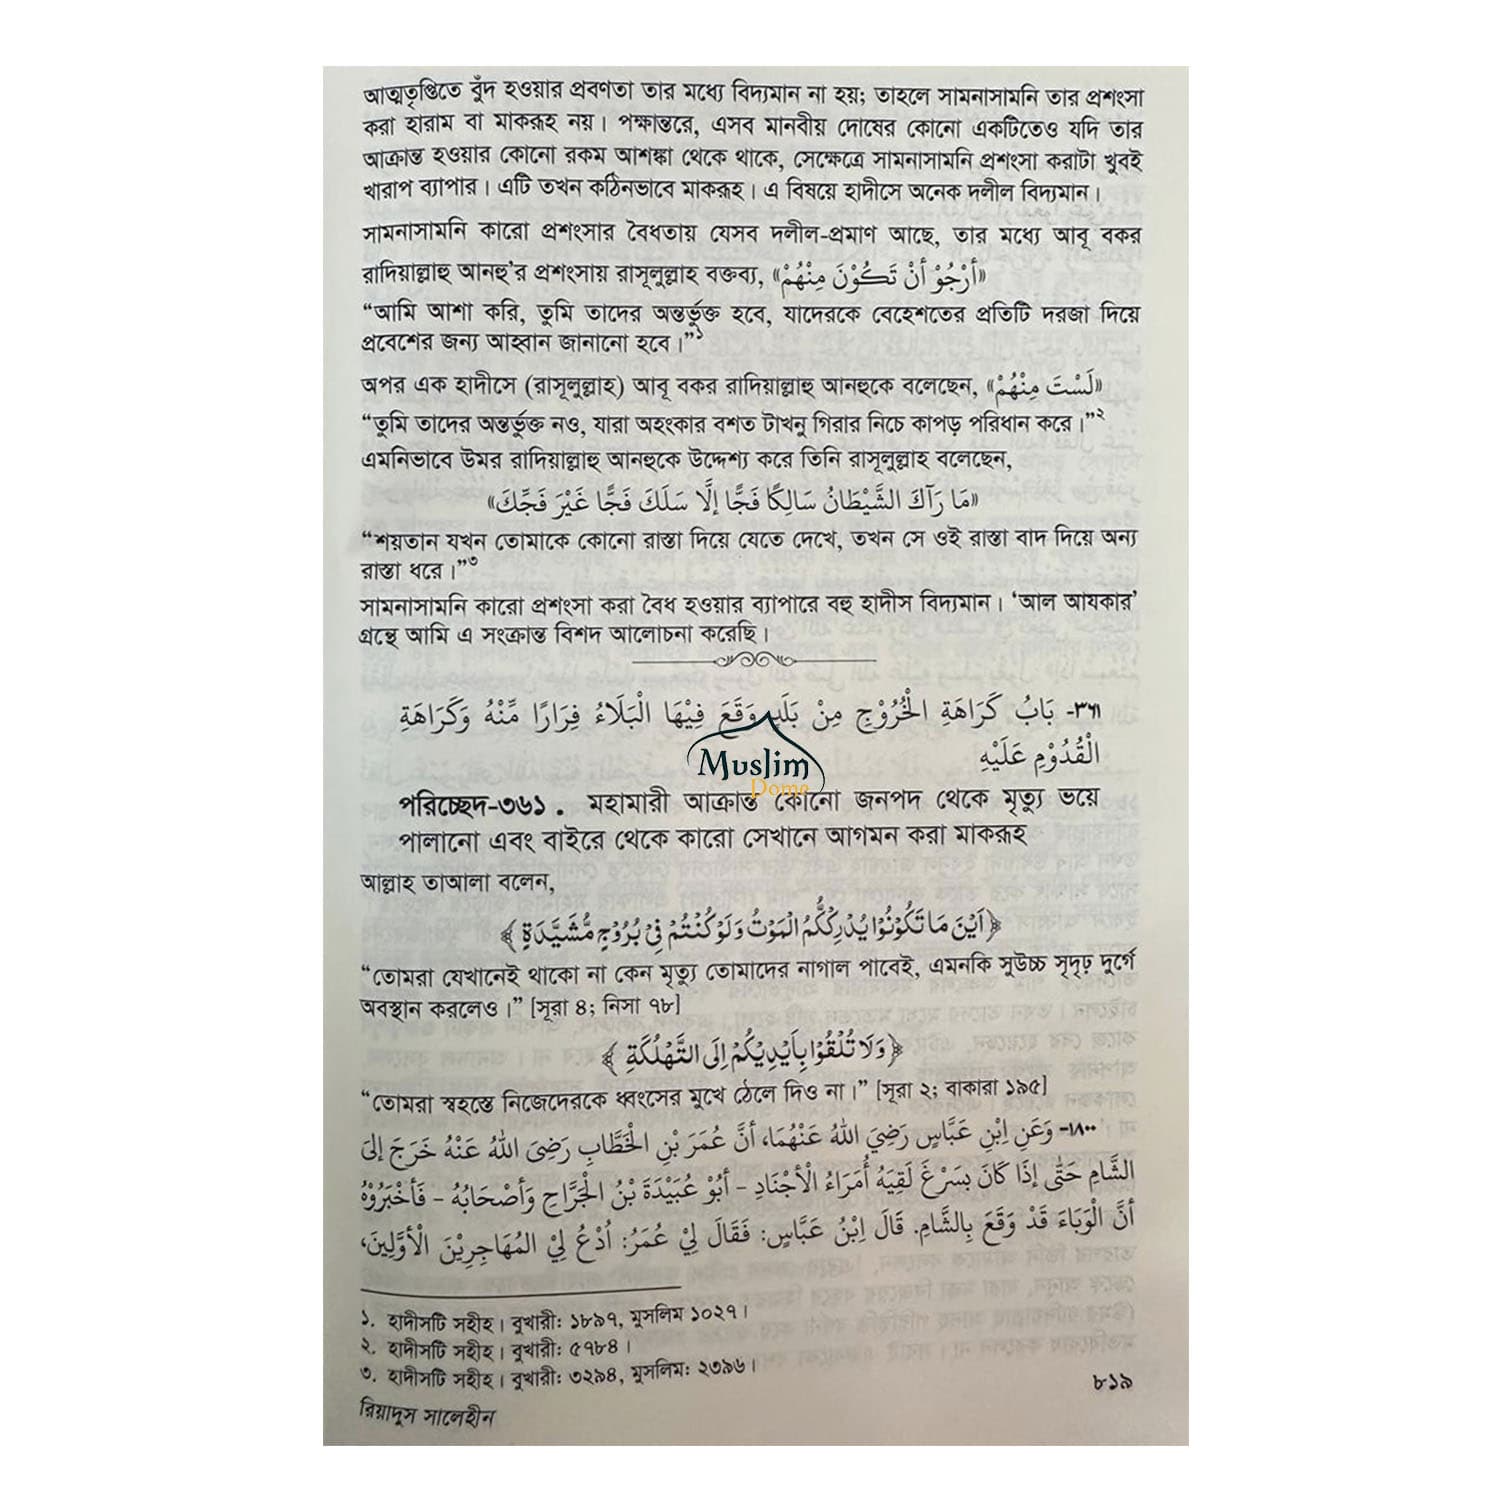 আত্মতৃপ্তিতে বুঁদ হওয়ার প্রবণতা তার মধ্যে বিদ্যমান না হয়; তাহলে সামনাসামনি তার প্রশংসা
করা হারাম বা মাকরূহ নয়। পক্ষান্তরে, এসব মানবীয় দোষের কোনো একটিতেও যদি তার
আক্রান্ত হওয়ার কোনো রকম আশঙ্কা থেকে থাকে, সেক্ষেত্রে সামনাসামনি প্রশংসা করাটা খুবই
খারাপ ব্যাপার। এটি তখন কঠিনভাবে মাকরূহ। এ বিষয়ে হাদীসে অনেক দলীল বিদ্যমান।
সামনাসামনি কারো প্রশংসার বৈধতায় যেসব দলীল-প্রমাণ আছে, তার মধ্যে আবূ বকর
রাদিয়াল্লাহু আনহু’র প্রশংসায় রাসূলুল্লাহ বক্তব্য, «أَرْجُوْ أَنْ تَكُوْنَ مِنْهُمْ»
“আমি আশা করি, তুমি তাদের অন্তর্ভুক্ত হবে, যাদেরকে বেহেশতের প্রতিটি দরজা দিয়ে
প্রবেশের জন্য আহ্বান জানানো হবে।”১
অপর এক হাদীসে (রাসূলুল্লাহ) আবূ বকর রাদিয়াল্লাহু আনহুকে বলেছেন, «لَسْتَ مِنْهُمْ»
“তুমি তাদের অন্তর্ভুক্ত নও, যারা অহংকার বশত টাখনু গিরার নিচে কাপড় পরিধান করে।”২
এমনিভাবে উমর রাদিয়াল্লাহু আনহুকে উদ্দেশ্য করে তিনি রাসূলুল্লাহ বলেছেন,
«مَا رَآكَ الشَّيْطَانُ سَالِكًا فَجًّا إلَّا سَلَكَ فَجًّا غَيْرَ فَجِّكَ»
“শয়তান যখন তোমাকে কোনো রাস্তা দিয়ে যেতে দেখে, তখন সে ওই রাস্তা বাদ দিয়ে অন্য
রাস্তা ধরে।”৩
সামনাসামনি কারো প্রশংসা করা বৈধ হওয়ার ব্যাপারে বহু হাদীস বিদ্যমান। ‘আল আযকার’
গ্রন্থে আমি এ সংক্রান্ত বিশদ আলোচনা করেছি।
٣٦١- بَابُ كَرَاهَةِ الْخُرُوْجِ مِنْ بَلَدٍ وَقَعَ فِيْهَا الْبَلَاءُ فِرَارًا مِّنْهُ وَكَرَاهَةِ
الْقُدُوْمِ عَلَيْهِ
Muslim
Dome
পরিচ্ছেদ-৩৬১. মহামারী আক্রান্ত কোনো জনপদ থেকে মৃত্যু ভয়ে
পালানো এবং বাইরে থেকে কারো সেখানে আগমন করা মাকরূহ
আল্লাহ তাআলা বলেন,
﴿اَيْنَ مَا تَكُوْنُوْا يُدْرِكْكُّمُ الْمَوْتُ وَلَوْ كُنْتُمْ فِيْ بُرُوْجٍ مُّشَيَّدَةٍ﴾
“তোমরা যেখানেই থাকো না কেন মৃত্যু তোমাদের নাগাল পাবেই, এমনকি সুউচ্চ সৃদৃঢ় দুর্গে
অবস্থান করলেও।” [সূরা ৪; নিসা ৭৮]
﴿وَلَا تُلْقُوْا بِاَيْدِيْكُمْ اِلَى التَّهْلُكَةِ﴾
“তোমরা স্বহস্তে নিজেদেরকে ধ্বংসের মুখে ঠেলে দিও না।” [সূরা ২; বাকারা ১৯৫]
١٨٠٠- وَعَنِ اِبْنِ عَبَّاسٍ رَضِيَ اللهُ عَنْهُمَا، أنَّ عُمَرَ بْنِ الْخَطَّابِ رَضِىَ اللهُ عَنْهُ خَرَجَ إلىَ
الشَّامِ حَتّٰى إذَا كَانَ بِسَرْغَ لَقِيَهُ أُمَرَاءُ الْأجْنَادِ - أبُوْ عُبَيْدَةَ بْنُ الْجَرَّاحِ وَأصْحَابُهُ - فَأخْبَرُوْهُ
أنَّ الْوَبَاءَ قَدْ وَقَعَ بِالشَّامِ. قَالَ اِبْنُ عَبَّاسٍ: فَقَالَ لِيْ عُمَرُ: اُدْعُ لِيْ الْمُهَاجِرِيْنَ الْأوَّلِينَ،
১. হাদীসটি সহীহ। বুখারী: ১৮৯৭, মুসলিম ১০২৭।
২. হাদীসটি সহীহ। বুখারী: ৫৭৮৪।
৩. হাদীসটি সহীহ। বুখারী: ৩২৯৪, মুসলিম: ২৩৯৬।
৮১৯
রিয়াদুস সালেহীন